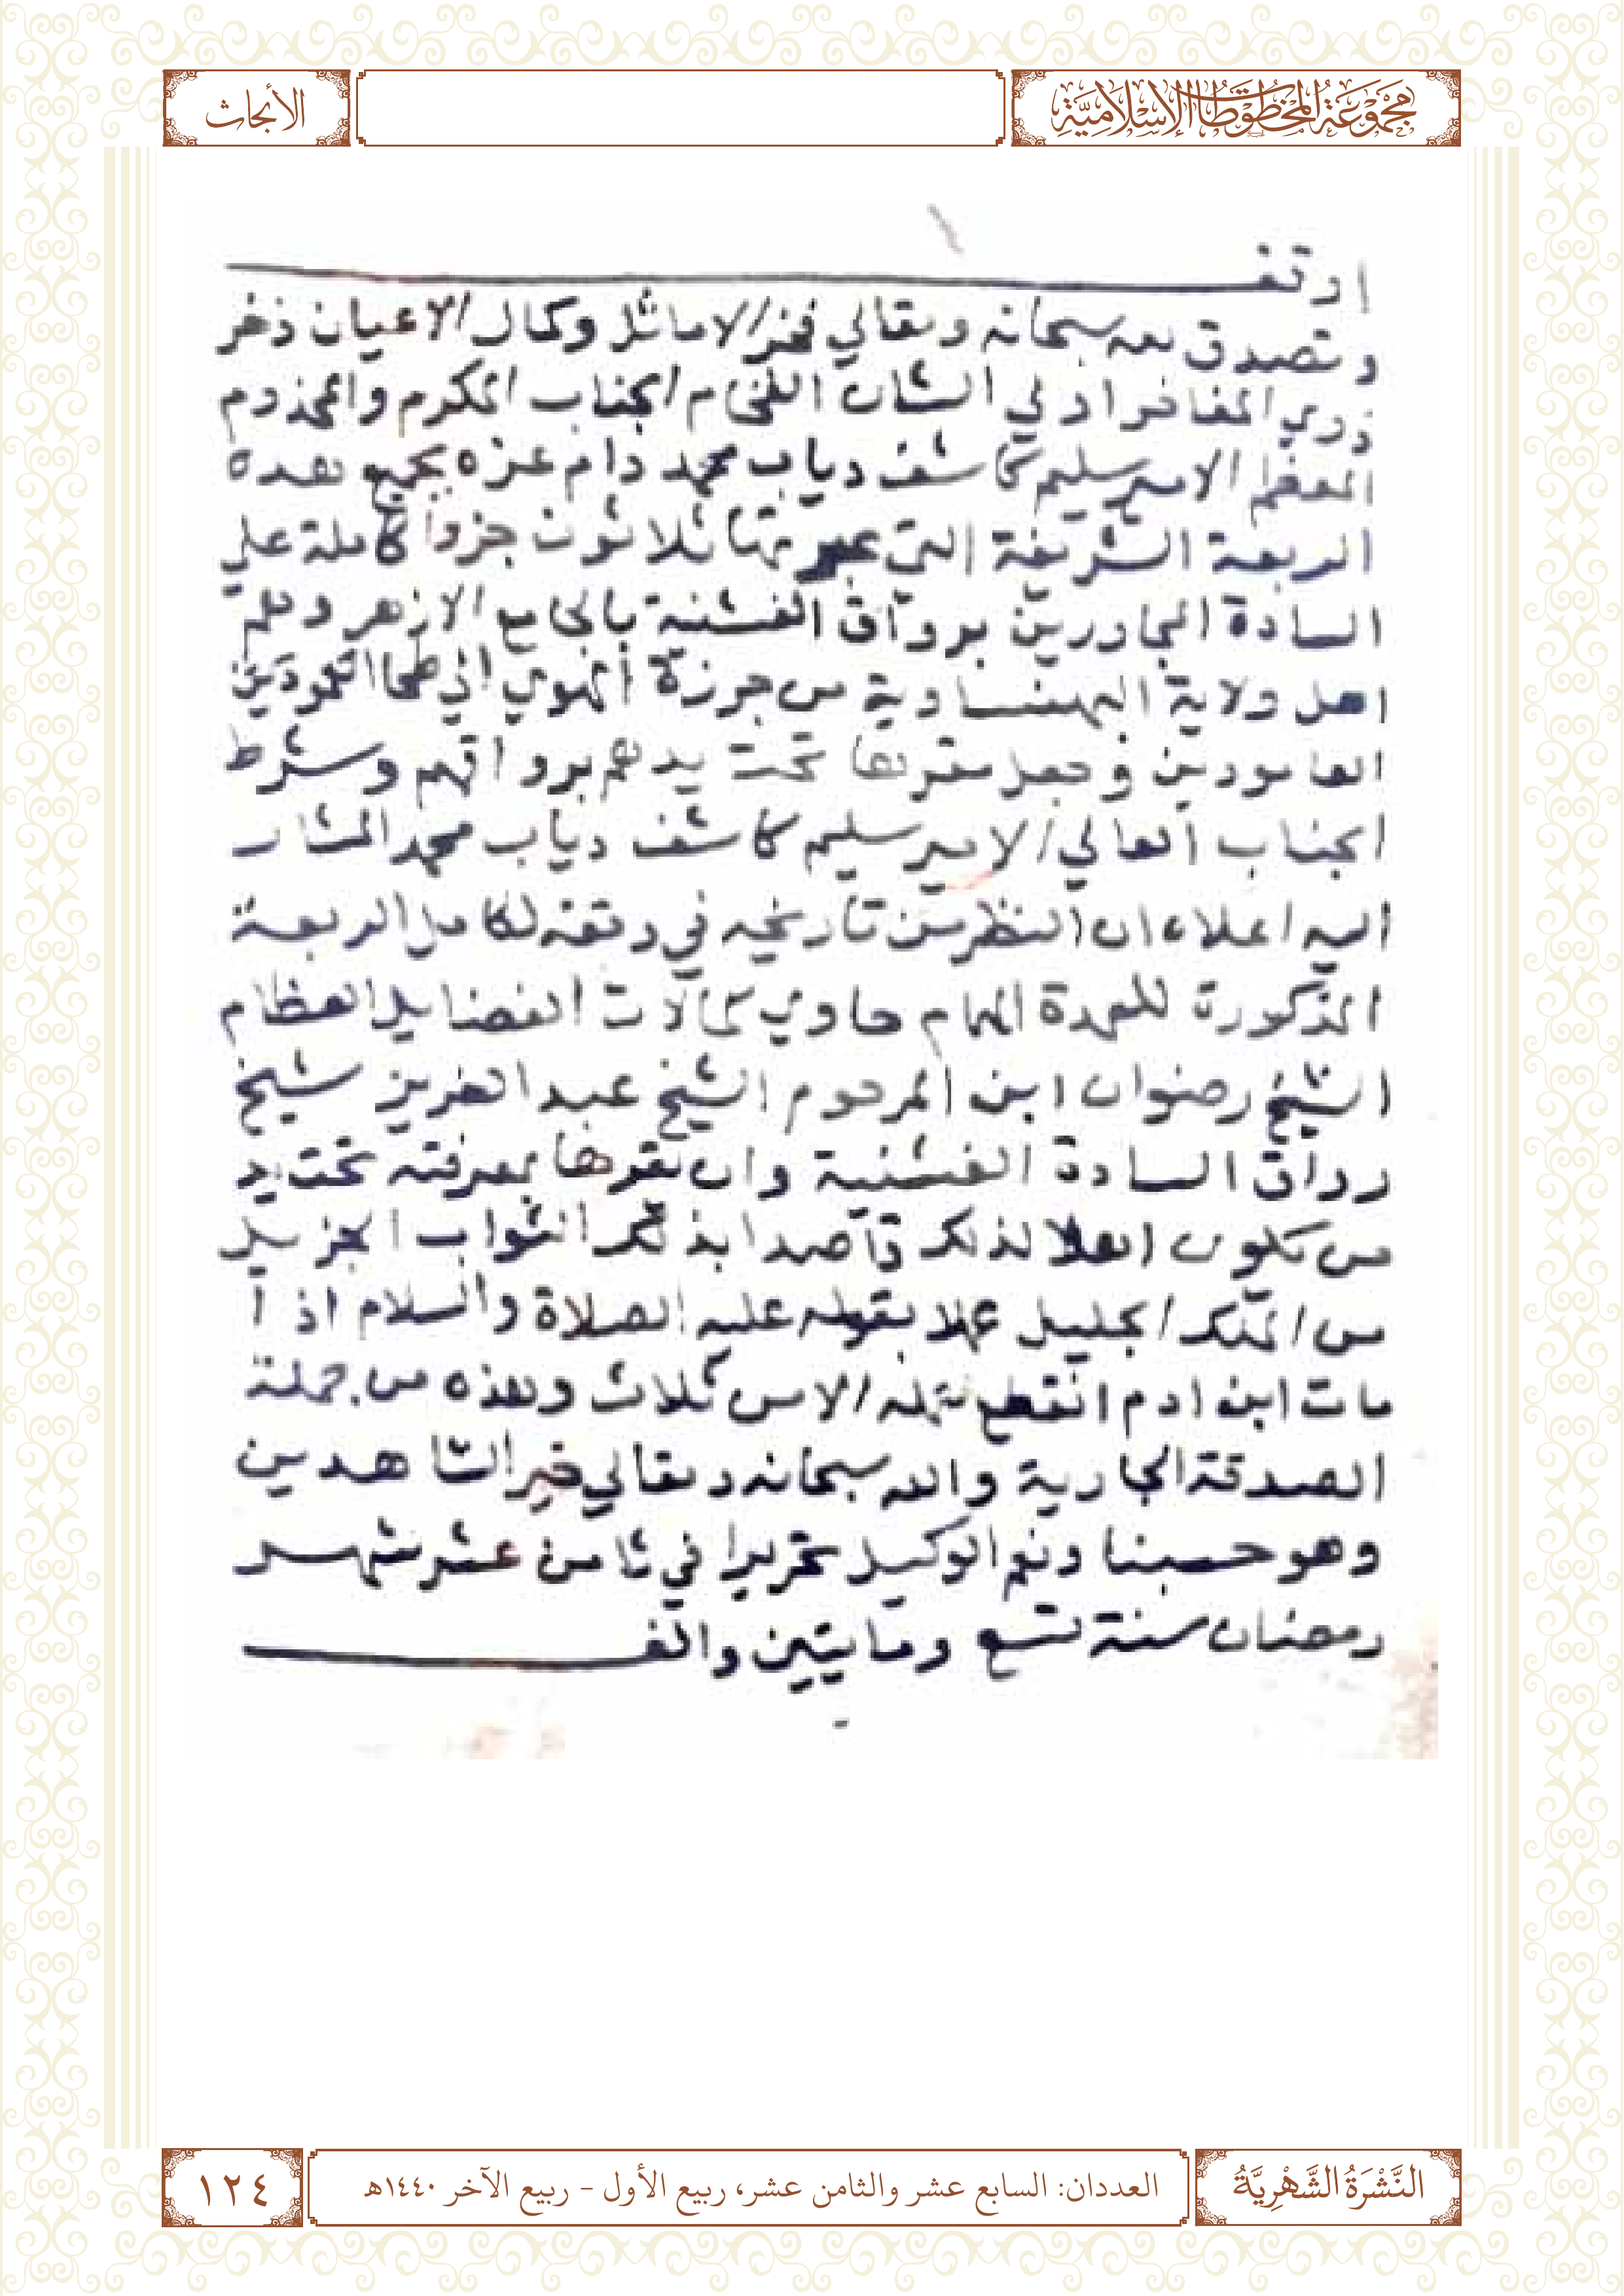 مَجْمُوعَةُ المَخْطُوطَاتِ الإِسْلَامِيَّةِ
الأبحاث
اوقف
وتصدق لله سبحانه وتعالي فخر الاماثل وكمال الاعيان ذخر
ذوي المفاخر اولي الشان الفخام الجناب المكرم والمخدوم
المعظم الامير سليم كاشف دياب محمد دام عزه بجميع هذه
الربعة الشريفة التي عبرتها ثلاثون جزوا كاملة علي
السادة المجاورين برواق الفشنية بالجامع الازهر وهم
اهل ولاية البهنساوية من جرزة الهوي الي طحا العمودين
العامودين وجعل مقرها تحت يدهم برواقهم وشرط
الجناب العالي الامير سليم كاشف دياب محمد المشار
اليه اعلاه ان النظر من تاريخه في وقفه لكامل الربعة
المذكورة للعمدة الهمام حاوي كمالات الفضايل العظام
الشيخ رضوان ابن المرحوم الشيخ عبد العزيز شيخ
رواق السادة الفشنية وان مقرها بمعرفته تحت يد
من يكون اهلا لذلك قاصدا بذلك الثواب الجزيل
من الملك الجليل عملا بقوله عليه الصلاة والسلام اذ ا
مات ابن ادم انقطع عمله الا من ثلاث وهذه من جملة
الصدقة الجارية والله سبحانه وتعالي خير الشاهدين
وهو حسبنا ونعم الوكيل تحريرا في ثامن عشر شهر
رمضان سنة تسع ومايتين والف
النَّشْرَةُ الشَّهْرِيَّةُ
العددان: السابع عشر والثامن عشر، ربيع الأول - ربيع الآخر ١٤٤٠هـ
١٢٤